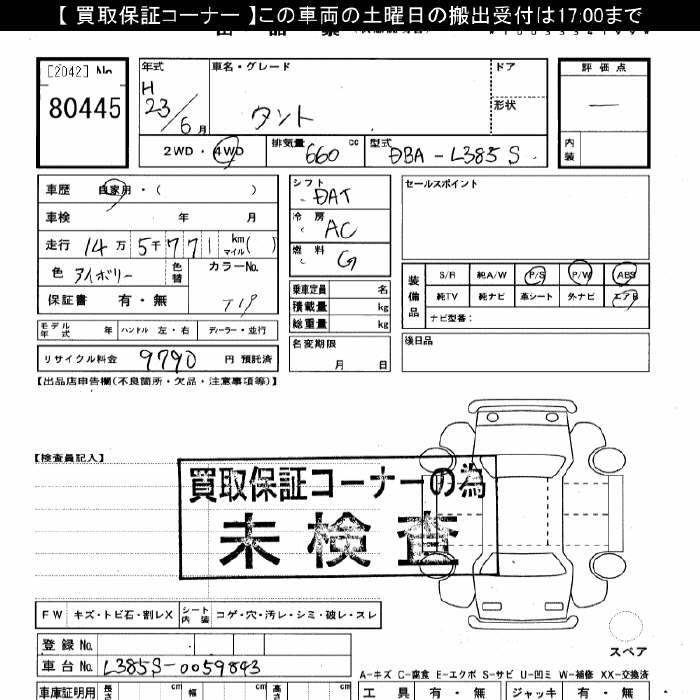 【 買取保証コーナー 】この車両の土曜日の搬出受付は17:00まで
[2042] No
80445
年式
H
23/6月
車名・グレード
タント
ドア
形状
評価点
—
内装
2WD・4WD
排気量 660 cc
型式 DBA-L385S
車歴 自家用・( )
車検 年 月
走行 14万5千771 km マイル( )
色 アイボリー 色替
カラーNo. T19
保証書 有・無
シフト DAT
冷房 AC
燃料 G
乗車定員 名
積載量 kg
総重量 kg
セールスポイント
装備品
S/R 純A/W P/S P/W ABS
純TV 純ナビ 革シート 外ナビ エアB
ナビ型番：
モデル年式 年 ハンドル 左・右 ディーラー・並行
リサイクル料金 9790 円 預託済
名変期限
月 日
後日品
【出品店申告欄(不良箇所・欠品・注意事項等)】
【検査員記入】
買取保証コーナーの為
未検査
FW キズ・トビ石・割レX シート内装 コゲ・穴・汚レ・シミ・破レ・スレ
スペア
登録 No.
車台 No. L385S-0059843
A-キズ C-腐食 E-エクボ S-サビ U-凹ミ W-補修 XX-交換済
車庫証明用 長さ cm 幅 cm 高さ cm
工具 有・無 ジャッキ 有・無